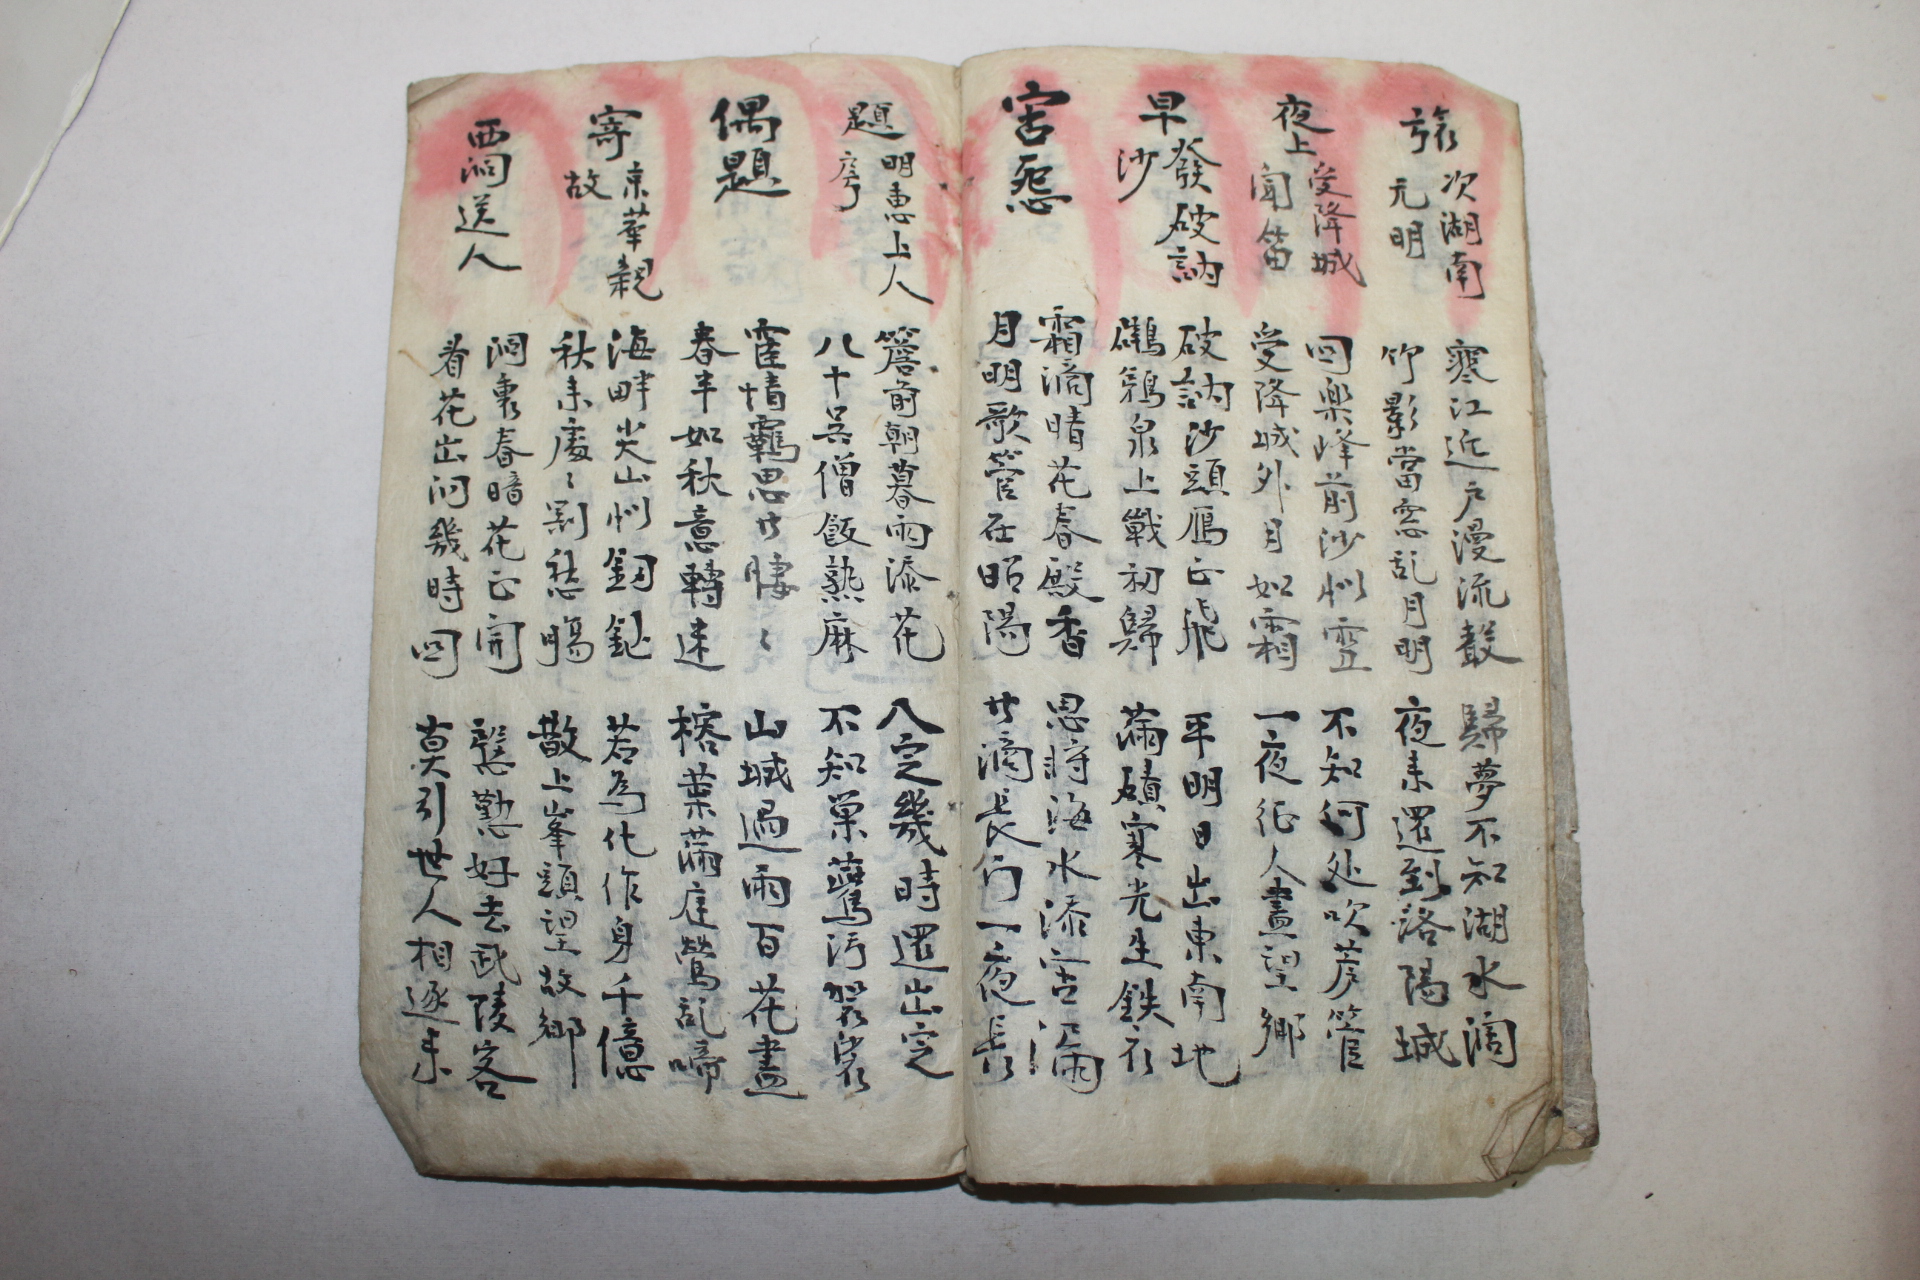 旅次湖南
元明
寒江近戶漫流聲
竹影當窓乱月明
歸夢不知湖水濶
夜來還到洛陽城
夜上受降城
聞笛
回樂峰前沙似雪
受降城外月如霜
不知何处吹芦管
一夜征人盡望鄉
早發破訥
沙
破訥沙頭鴈正飛
鸊鵜泉上戰初歸
平明日出東南地
滿磧寒光生鉄衣
宮怨
霜滴晴花春殿香
月明歌管在昭陽
思將海水添宮漏
共滴長門一夜長
題明惠上人
房
簷前朝暮雨添花
八十吳僧飯熟麻
入定幾時還出定
不知巢燕汚袈裟
偶題
宦情羈思共悽〻
春半如秋意轉迷
山城過雨百花盡
榕葉滿庭鶯乱啼
寄京華親
故
海畔尖山似釼鋩
秋來處〻割愁腸
若為化作身千億
散上峯頭望故鄉
西洞送人
洞裏春暗花正開
看花出洞幾時回
慇懃好去武陵客
莫引世人相逐來